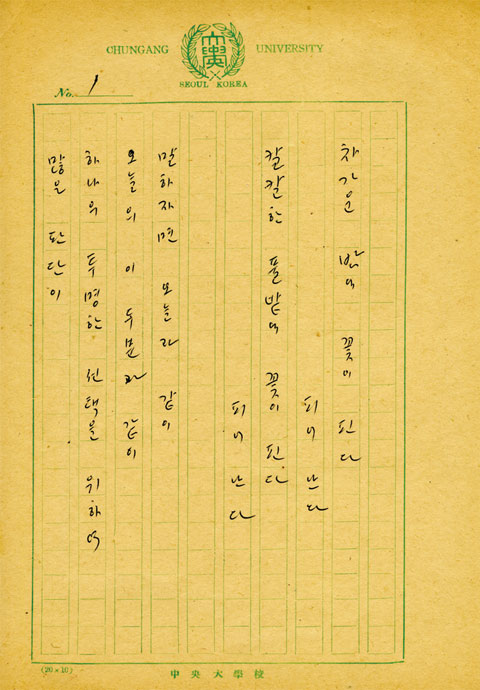 CHUNGANG UNIVERSITY
中央
SEOUL KOREA
No. 1
차가운 밤에 꽃이 핀다
피어난다
칼칼한 풀밭에 꽃이 핀다
피어난다
말하자면 오늘과 같이
오늘의 이 두보과 같이
하나의 투명한 선택을 위하여
많은 판단이
(20×10)
中央大學校